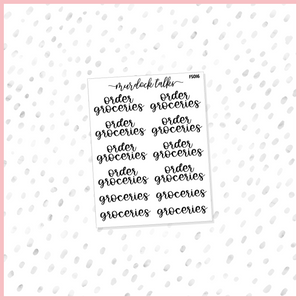 murdock talks
FS016
order groceries order groceries
order groceries order groceries
order groceries order groceries
order groceries order groceries
groceries groceries
groceries groceries